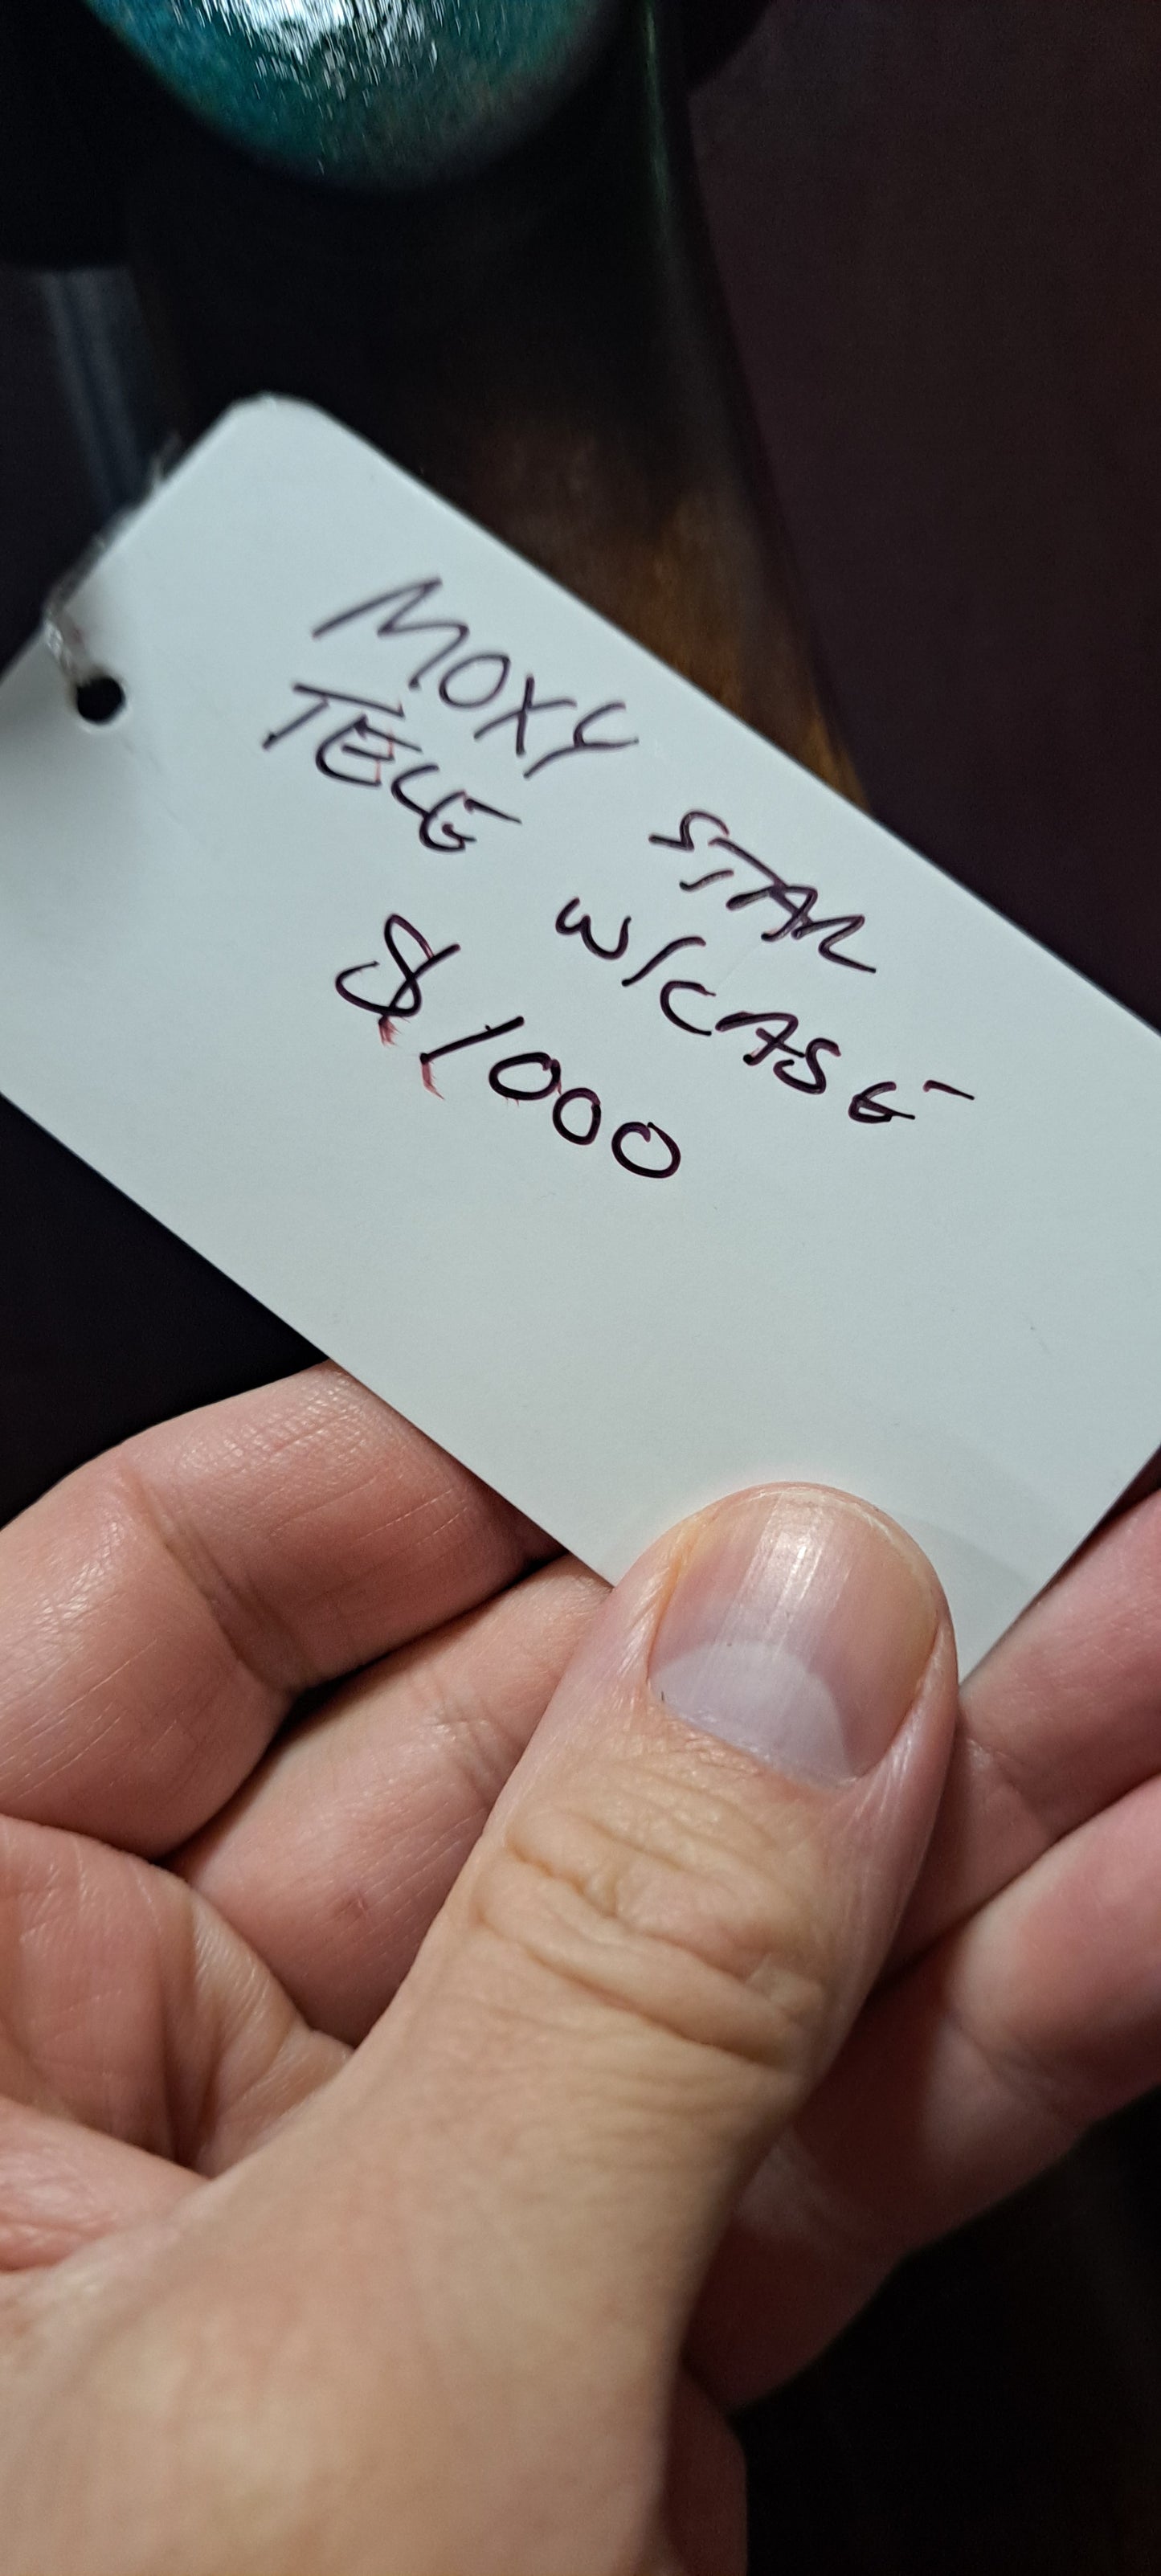 MOXY STAR
TELE W/CASE
$1000